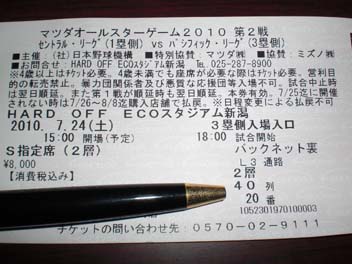 マツダオールスターゲーム2010 第2戦
セントラル・リーグ(1塁側) vs パシフィック・リーグ(3塁側)
■主催:(社)日本野球機構 ■特別協賛:マツダ(株) ■協賛:ミズノ(株)
■お問合せ:HARD OFF ECOスタジアム新潟 TEL.025-287-8900
※4歳以上はチケット必要。4歳未満でも座席が必要な際は必要。営利目
的の転売禁止。暴力団関係者及び悪質な応援等入場不可。試合中止でも払戻
いません。また第1戦が順延時も翌日順延。本券有効。7/25迄に開催
されない場合は7/26〜8/8迄購入店舗で払戻。※日程変更による払戻不可
HARD OFF ECOスタジアム新潟
2010. 7.24(土) 3塁側入場入口
15:00 開場(予定) 18:00 試合開始
S指定席(2層) バックネット裏
¥8,000 L3 通路
【消費税込み】 2層
40 列
20 番
1052301970100003
チケットの問い合わせ先:0570-02-9111